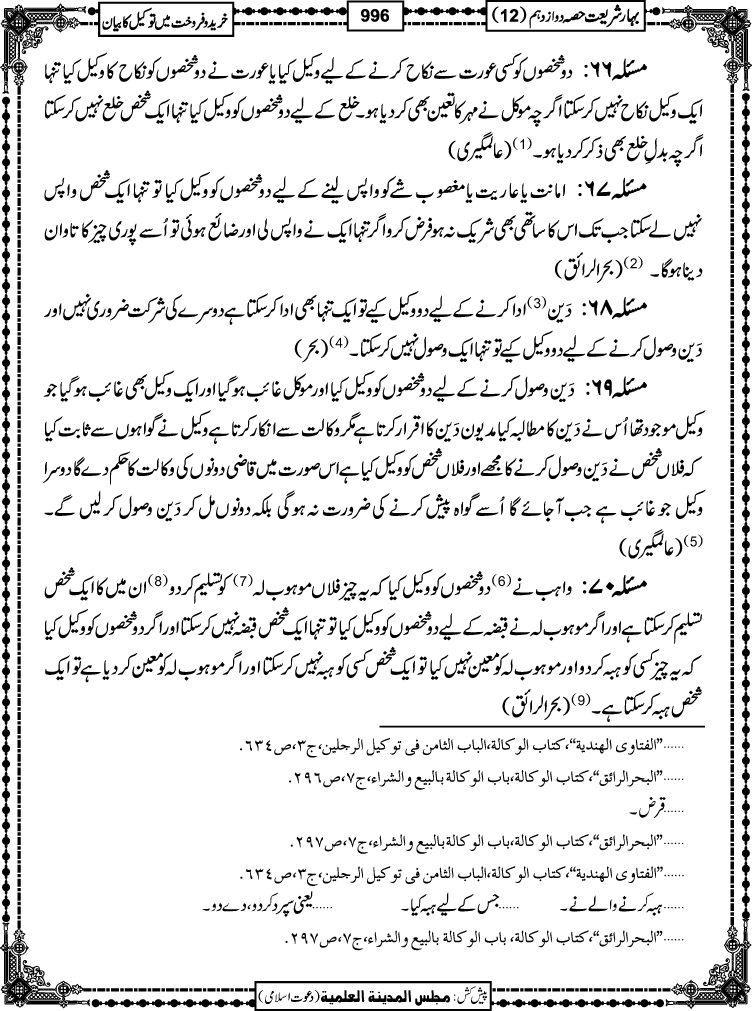 بہارِ شریعت حصہ دوازدہم (12)
996
خرید و فروخت میں توکیل کا بیان
مسئلہ ۶۶: دو شخصوں کو کسی عورت سے نکاح کرنے کے لیے وکیل کیا یا عورت نے دو شخصوں کو نکاح کا وکیل کیا تنہا
ایک وکیل نکاح نہیں کرسکتا اگرچہ موکل نے مہر کا تعین بھی کردیا ہو۔ خلع کے لیے دو شخصوں کو وکیل کیا تنہا ایک شخص خلع نہیں کرسکتا
اگرچہ بدلِ خلع بھی ذکر کردیا ہو۔(1) (عالمگیری)
مسئلہ ۶۷: امانت یا عاریت یا مغصوب شے کو واپس لینے کے لیے دو شخصوں کو وکیل کیا تو تنہا ایک شخص واپس
نہیں لے سکتا جب تک اس کا ساتھی بھی شریک نہ ہو فرض کرو اگر تنہا ایک نے واپس لی اور ضائع ہوئی تو اُسے پوری چیز کا تاوان
دینا ہوگا۔ (2) (بحرالرائق)
مسئلہ ۶۸: دَین(3) ادا کرنے کے لیے دو وکیل کیے تو ایک تنہا بھی ادا کرسکتا ہے دوسرے کی شرکت ضروری نہیں اور
دَین وصول کرنے کے لیے دو وکیل کیے تو تنہا ایک وصول نہیں کرسکتا۔(4) (بحر)
مسئلہ ۶۹: دَین وصول کرنے کے لیے دو شخصوں کو وکیل کیا اور موکل غائب ہوگیا اور ایک وکیل بھی غائب ہوگیا جو
وکیل موجود تھا اُس نے دَین کا مطالبہ کیا مدیون دَین کا اقرار کرتا ہے مگر وکالت سے انکار کرتا ہے وکیل نے گواہوں سے ثابت کیا
کہ فلاں شخص نے دَین وصول کرنے کا مجھے اور فلاں شخص کو وکیل کیا ہے اس صورت میں قاضی دونوں کی وکالت کا حکم دے گا دوسرا
وکیل جو غائب ہے جب آجائے گا اُسے گواہ پیش کرنے کی ضرورت نہ ہوگی بلکہ دونوں مل کر دَین وصول کرلیں گے۔
(5) (عالمگیری)
مسئلہ ۷۰: واہب نے(6) دو شخصوں کو وکیل کیا کہ یہ چیز فلاں موہوب لہ(7) کو تسلیم کردو(8) ان میں کا ایک شخص
تسلیم کرسکتا ہے اور اگر موہوب لہ نے قبضہ کے لیے دو شخصوں کو وکیل کیا تو تنہا ایک شخص قبضہ نہیں کرسکتا اور اگر دو شخصوں کو وکیل کیا
کہ یہ چیز کسی کو ہبہ کردو اور موہوب لہ کو معین نہیں کیا تو ایک شخص کسی کو ہبہ نہیں کرسکتا اور اگر موہوب لہ کو معین کردیا ہے تو ایک
شخص ہبہ کرسکتا ہے۔(9) (بحرالرائق)
......”الفتاوی الهندية“، کتاب الوکالة، الباب الثامن فی توکیل الرجلین، ج۳، ص۶۳۴.
......”البحرالرائق“، کتاب الوکالة، باب الوکالة بالبیع والشراء، ج۷، ص۲۹۶.
......قرض۔
......”البحرالرائق“، کتاب الوکالة، باب الوکالة بالبیع والشراء، ج۷، ص۲۹۷.
......”الفتاوی الهندية“، کتاب الوکالة، الباب الثامن فی توکیل الرجلین، ج۳، ص۶۳۴.
......ہبہ کرنے والے نے۔ ......جس کے لیے ہبہ کیا۔ ......یعنی سپرد کردو، دے دو۔
......”البحرالرائق“، کتاب الوکالة، باب الوکالة بالبیع والشراء، ج۷، ص۲۹۷.
پیش کش: مجلس المدینة العلمیة (دعوتِ اسلامی)